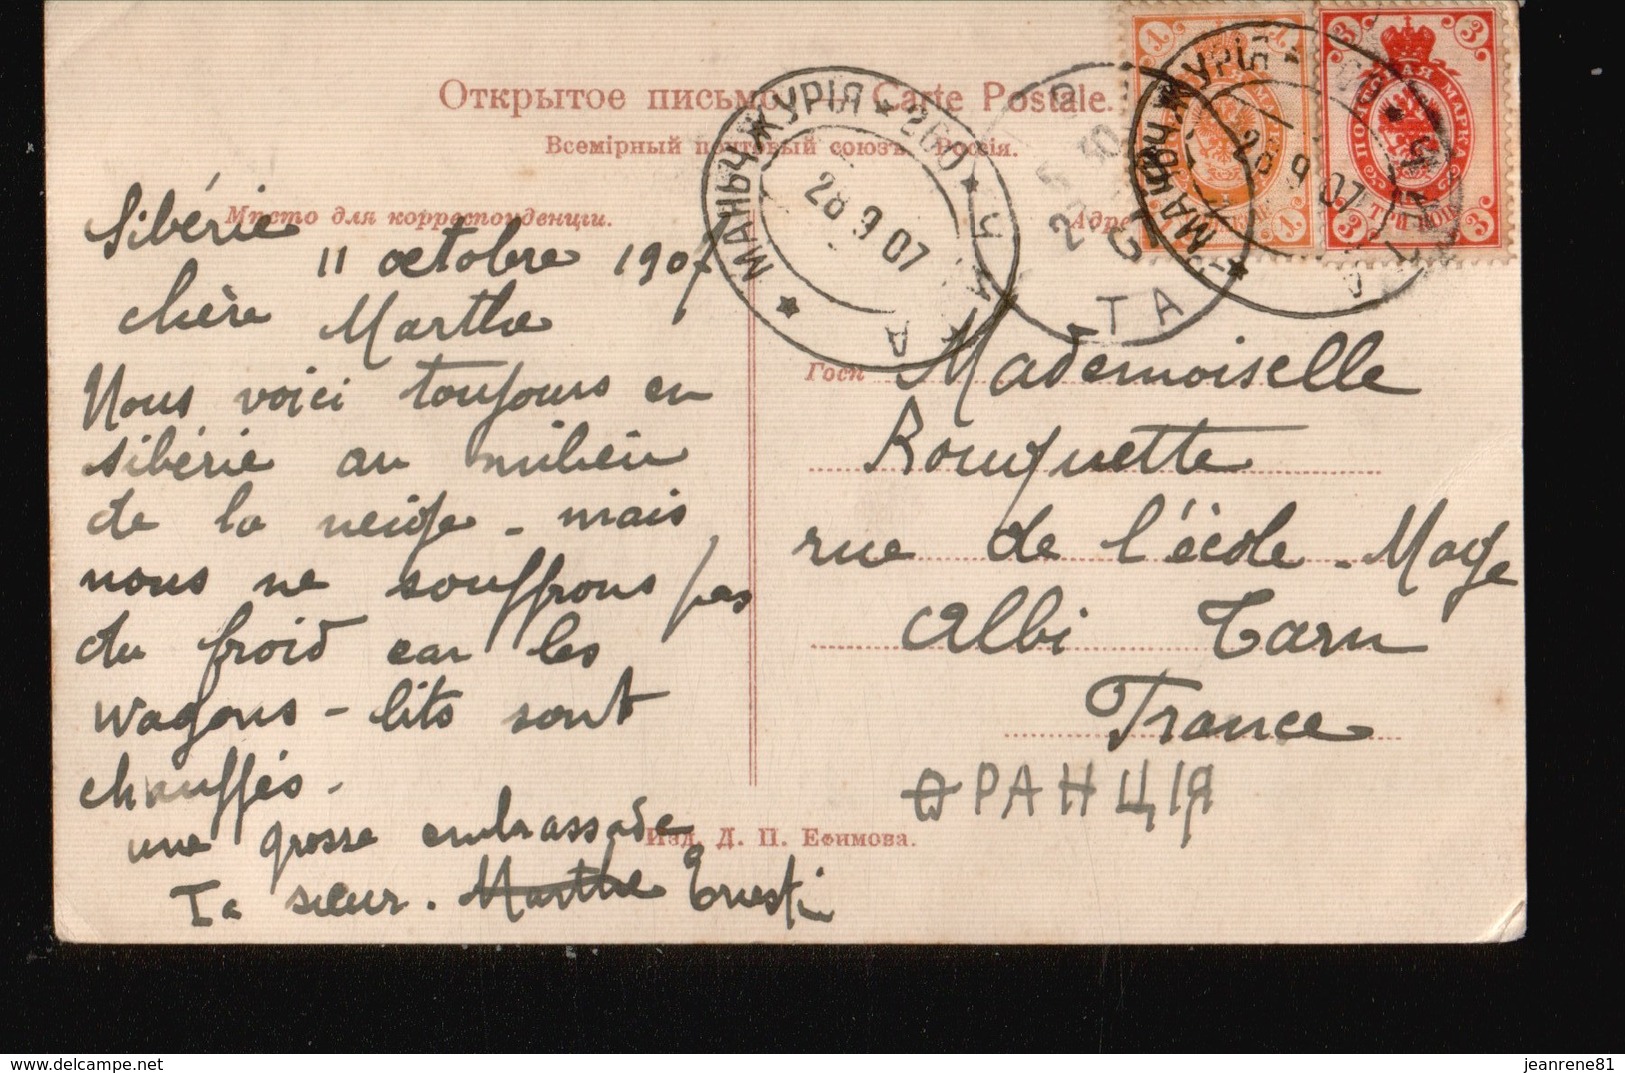 Открытое письмо. Carte Postale.
Всемірный почтовый союзъ. Россія.
Мѣсто для корреспонденціи.
Адре
МАНЬЧЖУРІЯ ★ 260 ★
28 9 07
МАНЬЧЖУРІЯ
28 9 07
ТА
1 1
3 3
МАРКА
Sibérie
11 octobre 1907
chère Marthe
Nous voici toujours en
sibérie au milieu
de la neige - mais
nous ne souffrons pas
du froid car les
wagons-lits sont
chauffés -
une grosse embrassade
Ta sœur. Marthe Ernestin
Госп
Mademoiselle
Rouquette
rue de l'école - Mage
Albi Tarn
France
ФРАНЦІЯ
Изд. Д. П. Ефимова.
jeanrene81